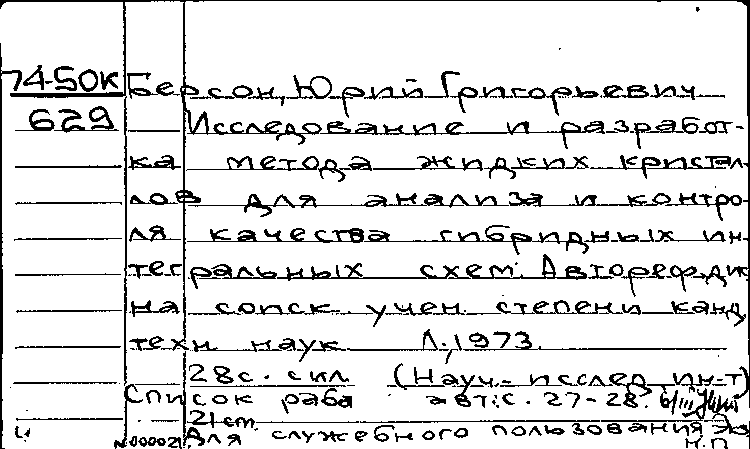 74-50К Берсон, Юрий Григорьевич
629 Исследование и разработ-
ка метода жидких кристал-
лов для анализа и контро-
ля качества гибридных ин-
тегральных схем. Автореф. дис
на соиск учен степени канд
техн наук Л., 1973.
28с. с ил. (Науч.-исслед ин-т)
Список работ авт.: с. 27-28.
21 см.
№ 000021 Для служебного пользования